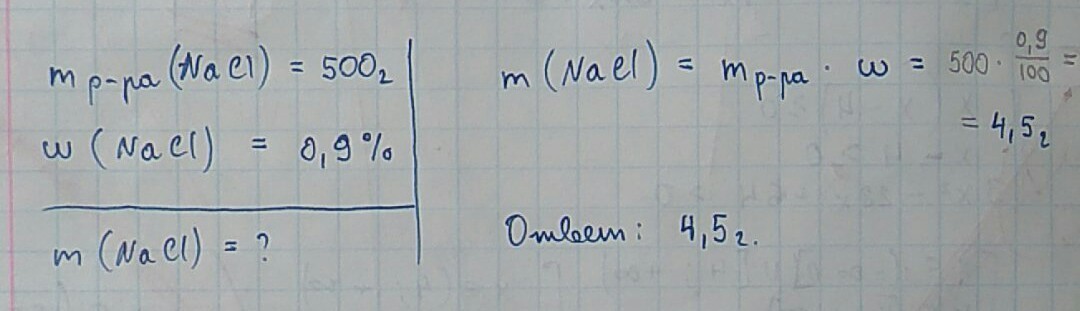 m р-ра (NaCl) = 500 г
w (NaCl) = 0,9 %
m (NaCl) = ?
m (NaCl) = m р-ра · w = 500 · 0,9/100 =
= 4,5 г
Ответ: 4,5 г.